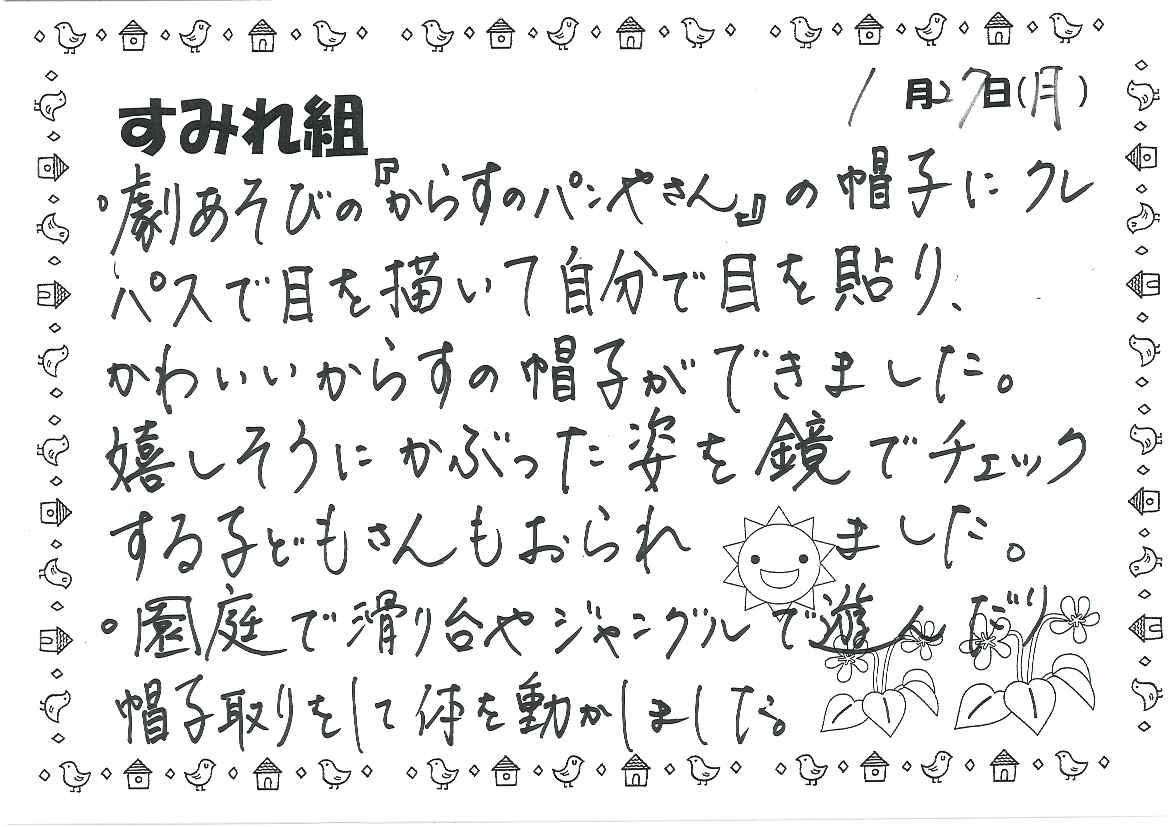 すみれ組
1月27日(月)
・劇あそびの『からすのパンやさん』の帽子にクレ
パスで目を描いて自分で目を貼り、
かわいいからすの帽子ができました。
嬉しそうにかぶった姿を鏡でチェック
する子どもさんもおられました。
・園庭で滑り台やジャングルで遊んだり
帽子取りをして体を動かしました。